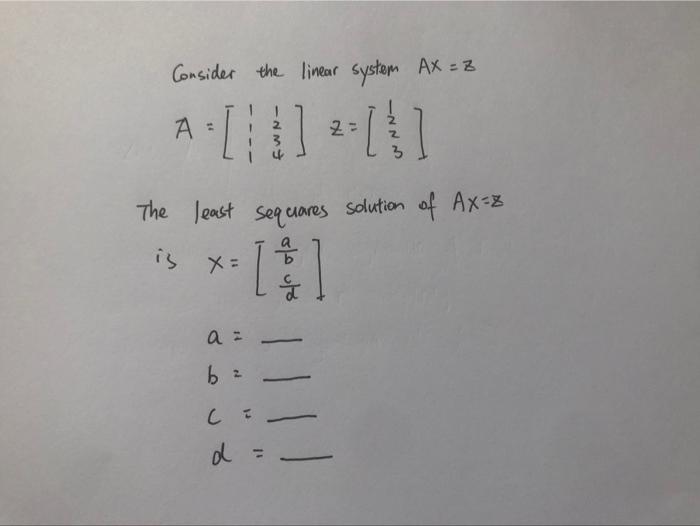 Consider the linear system AX = z
A = [ 1 1 z = [ 1
1 2 2
1 3 2
1 4 ] 3 ]
The least sequares solution of AX=z
is x = [ a/b
c/d ]
a =
b =
c =
d =